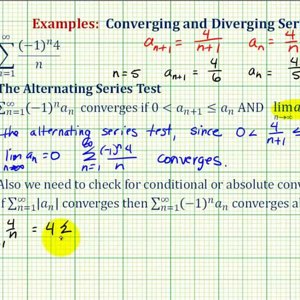 Examples: Converging and Diverging Ser
∑ n=1 (-1)^n 4 / n
a_{n+1} = 4/(n+1) a_n = 4/n
n=5 a_{n+1} = 4/6 a_n = 4/5
The Alternating Series Test
∑_{n=1}^∞ (-1)^n a_n converges if 0 < a_{n+1} ≤ a_n AND lim a n→∞
the alternating series test, since 0 < 4/(n+1) ≤
lim n→∞ a_n = 0 ∑_{n=1}^∞ (-1)^n 4 / n converges.
Also we need to check for conditional or absolute conv
f ∑_{n=1}^∞ |a_n| converges then ∑_{n=1}^∞ (-1)^n a_n converges a
4/n = 4 ∑